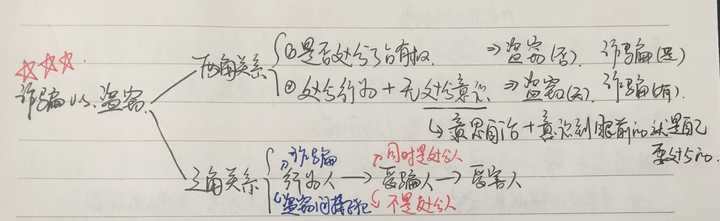 诈骗 vs. 盗窃
两角关系
①是否处分了占有权 ⇒ 盗窃(否). 诈骗(是)
②处分行为 + 无处分意识 ⇒ 盗窃(无). 诈骗(有).
↳ 意思自治 + 意识到眼前的就是自己要处分的.
三角关系
诈骗 同时是处分人
行为人 → 受骗人 → 受害人
盗窃间接正犯 不是处分人